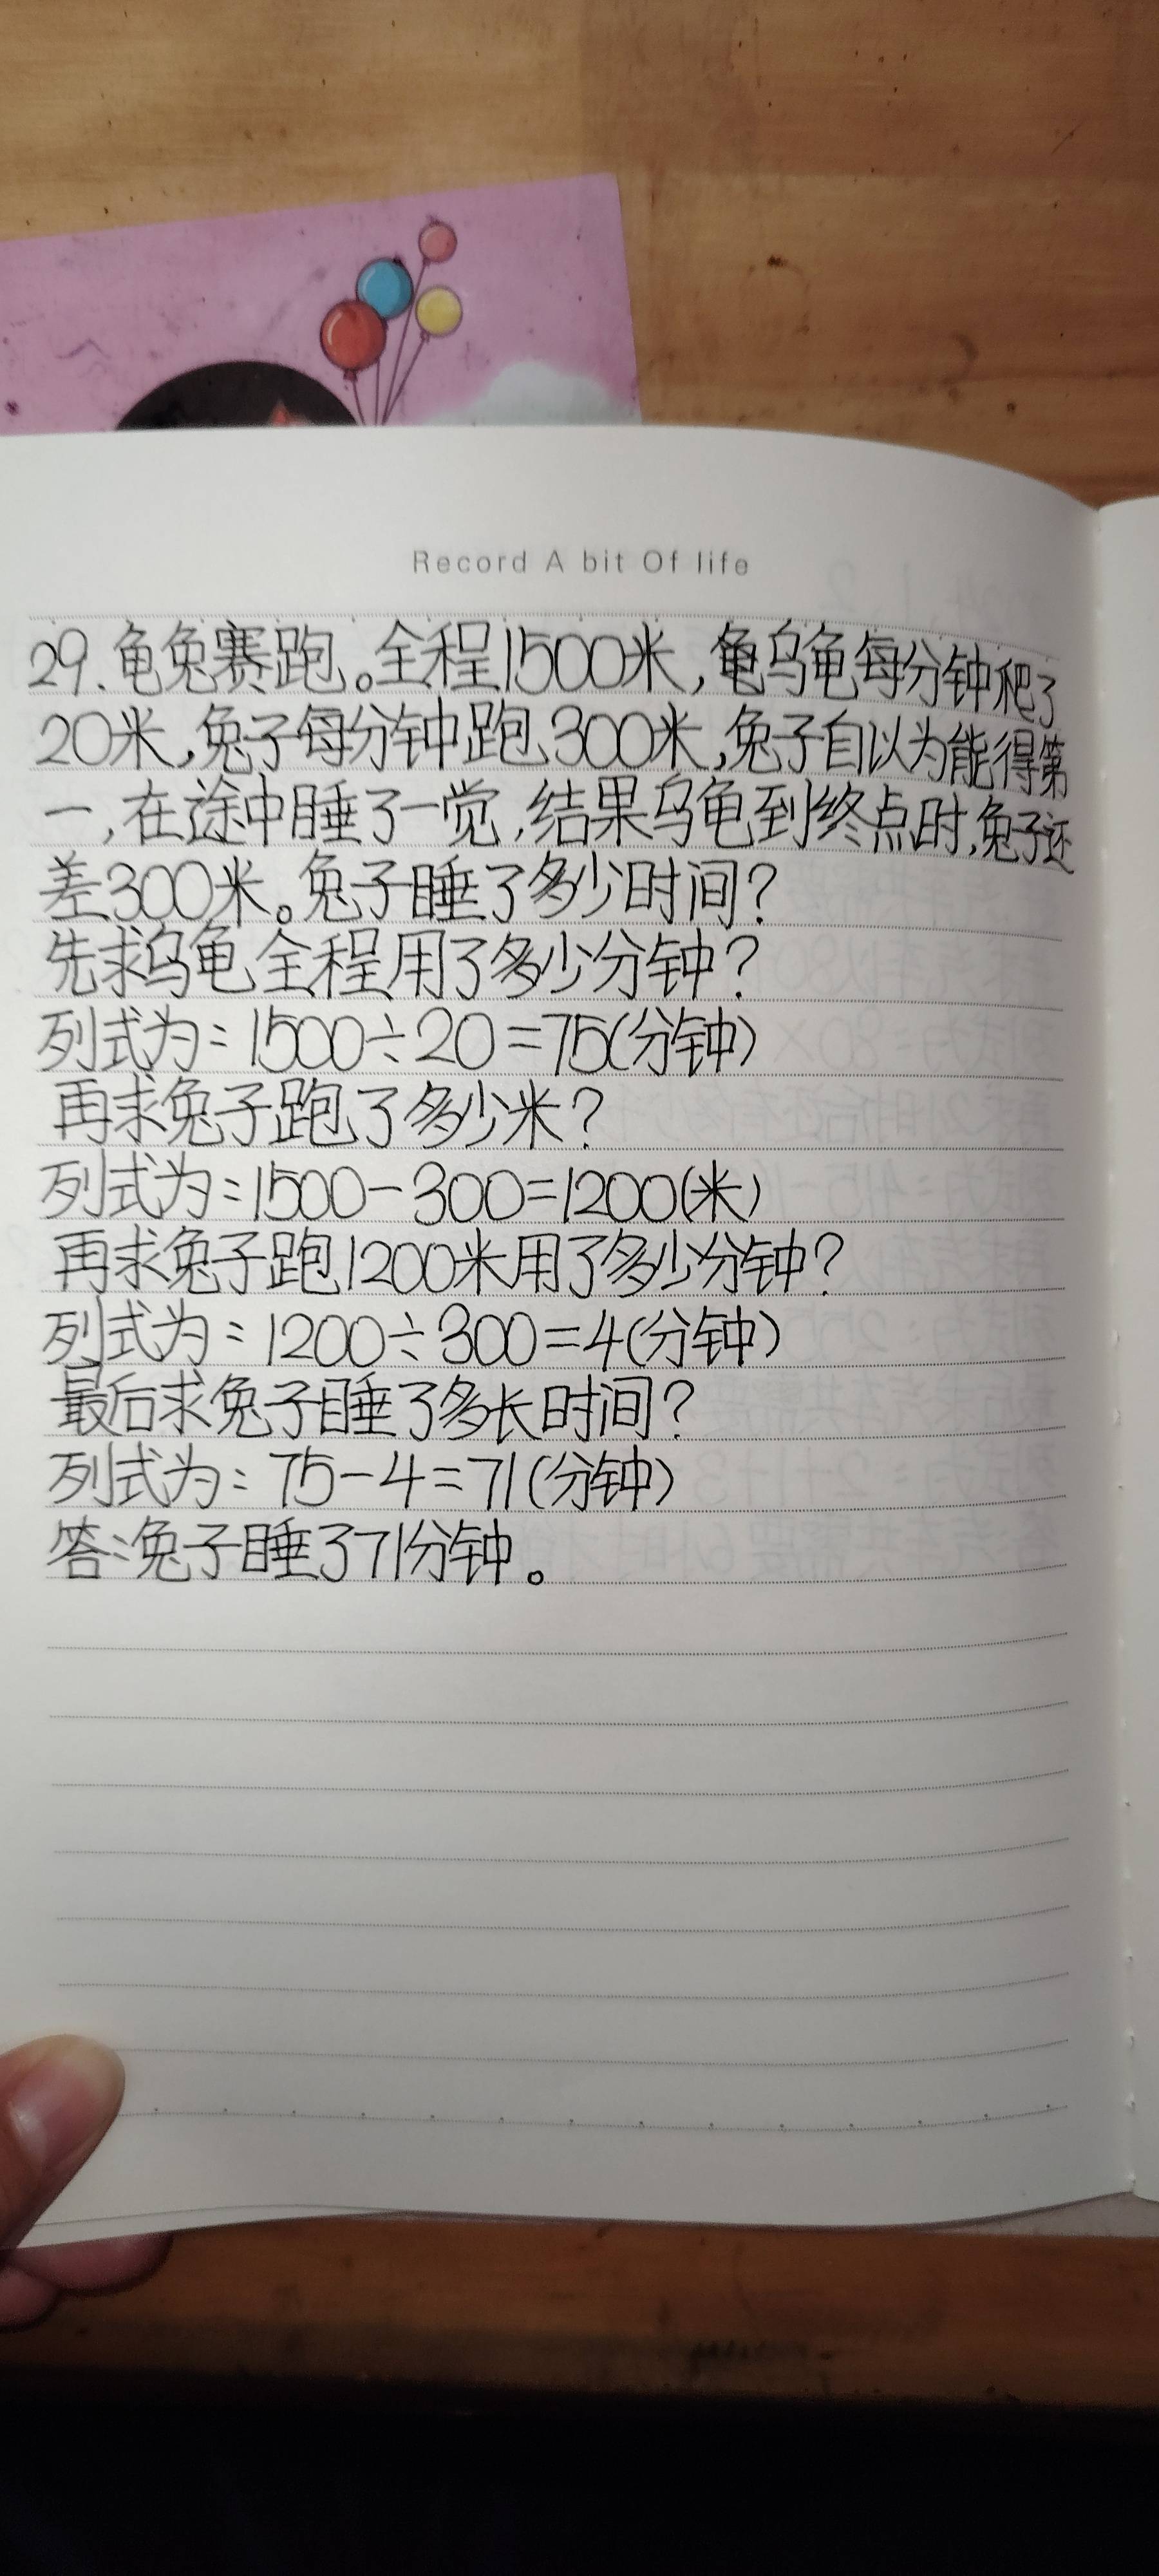 Record A bit Of life
29.龟兔赛跑。全程1500米,乌龟每分钟爬了
20米,兔子每分钟跑300米,兔子自以为能得第
一,在途中睡了一觉,结果乌龟到终点时,兔子还
差300米。兔子睡了多少时间?
先求乌龟全程用了多少分钟?
列式为:1500÷20=75(分钟)
再求兔子跑了多少米?
列式为:1500-300=1200(米)
再求兔子跑1200米用了多少分钟?
列式为:1200÷300=4(分钟)
最后求兔子睡了多长时间?
列式为:75-4=71(分钟)
答:兔子睡了71分钟。